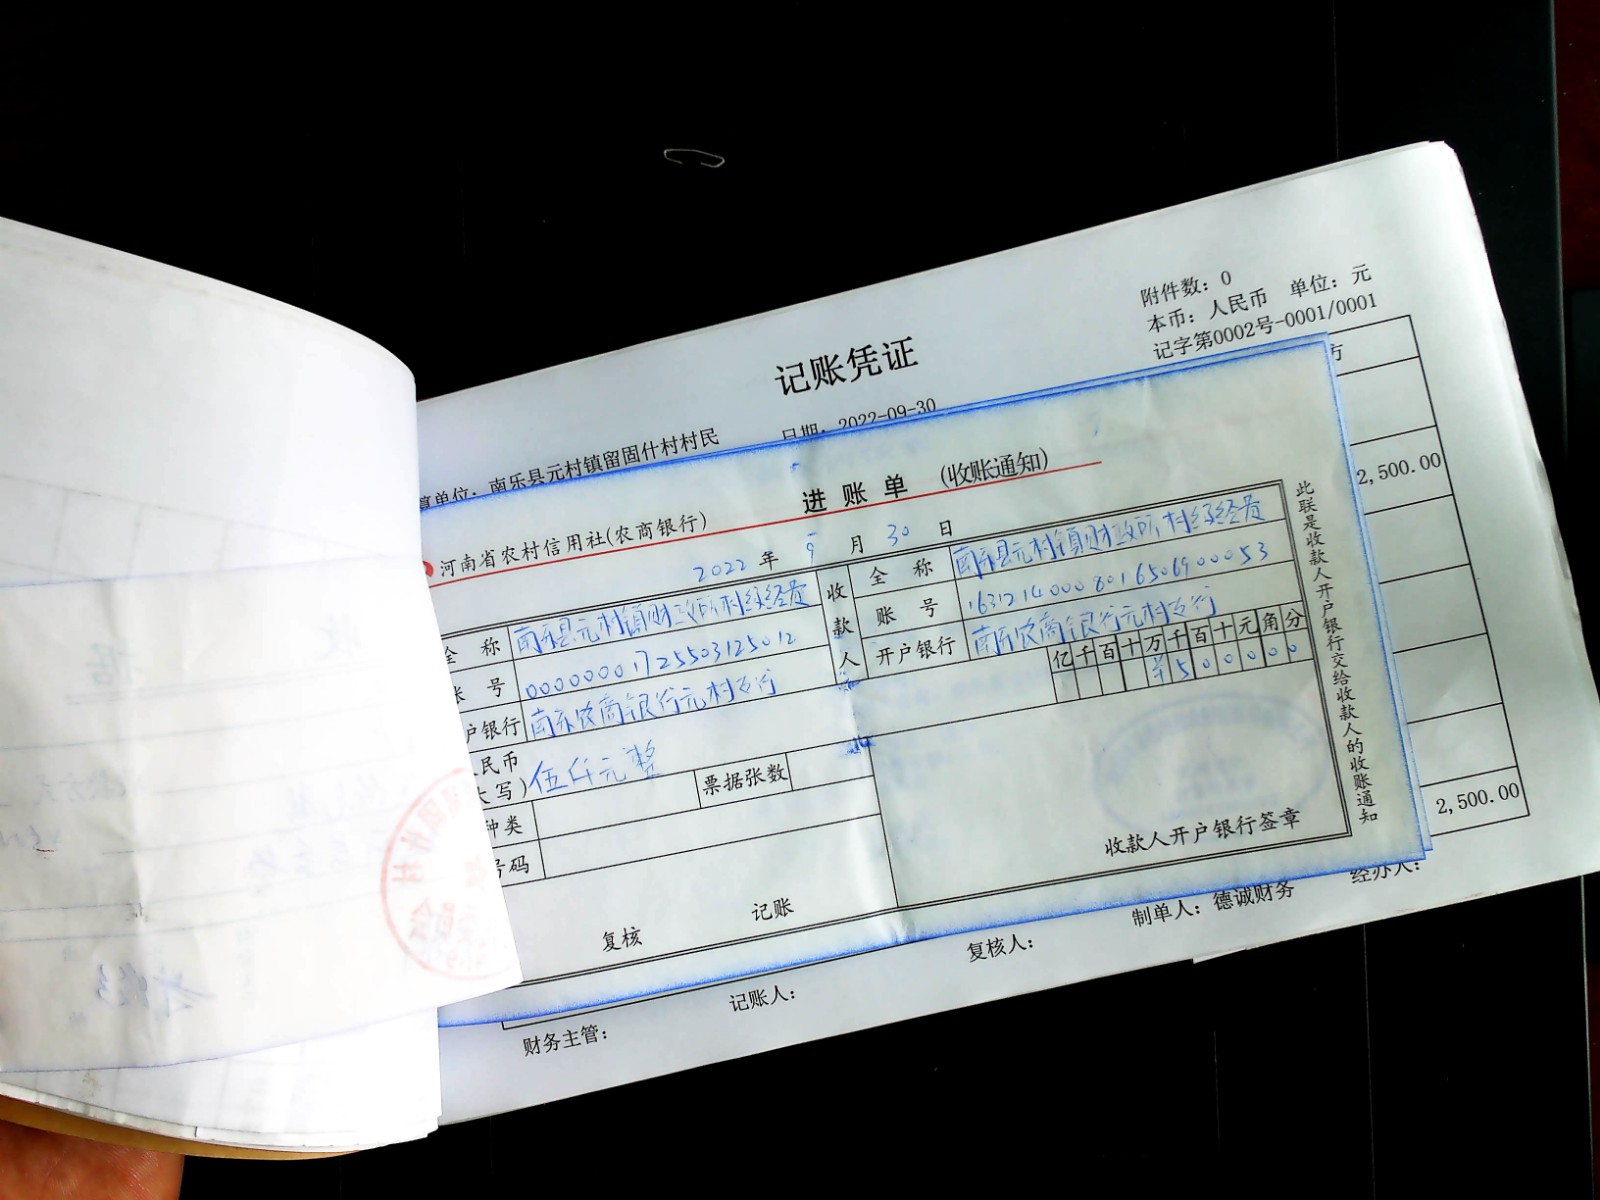 附件数: 0
本币: 人民币 单位: 元
记字第0002号-0001/0001
记账凭证
日期: 2022-09-30
算单位: 南乐县元村镇留固什村村民
方
2,500.00
2,500.00
进账单 (收账通知)
河南省农村信用社(农商银行)
2022 年 9 月 30 日
全称 南乐县元村镇财政所村级经费
账号 00000001725503125012
户银行 南乐农商银行元村支行
收款人
全称 南乐县元村镇财政所村级经费
账号 16312140008016506900053
开户银行 南乐农商银行元村支行
民币
大写) 伍仟元整
亿千百十万千百十元角分
¥500000
种类
票据张数
号码
收款人开户银行签章
复核 记账
此联是收款人开户银行交给收款人的收账通知
财务主管:
记账人:
复核人:
制单人: 德诚财务
经办人:
收据